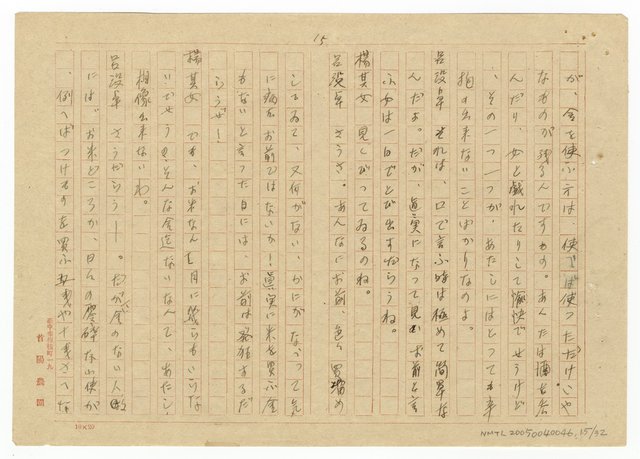 15
が、金を使ふ方は、使へば使つただけいや
なものが残るんですもの。あんたは酒を呑
んだり、女と戯れたりして愉快でせうけど
、その一つ一つが、あたしにはとつても辛
抱の出来ないことばかりなのよ。
呂設卓 それは、口で言ふ時は極めて簡単な
んだよ。だが、真実になつて見ればお前と言
ふ女は一日でとび出すだらうね。
楊其女 見くびつてゐるのね。
呂設卓 さうさ。あんなにお前、色々買溜め
してゐて、又何がない、かにがないつて
に病むお前ではないか！真実に米を買ふ金
もないと言つた日には、お前は発狂するだ
らうぜ！
楊其女 でも、お米なんて月に幾らもいらな
いでせうそんな金迄ないなんて、あたし、
想像出来ないわ。
呂設卓 さうだらう！。だが、金のない人
には、お米どころか、日々の零碎な小使が
、例へばつけるものを買ふ
新亭家府桜町一九
首陽農園
10×20
NMTL20050040046, 15/32